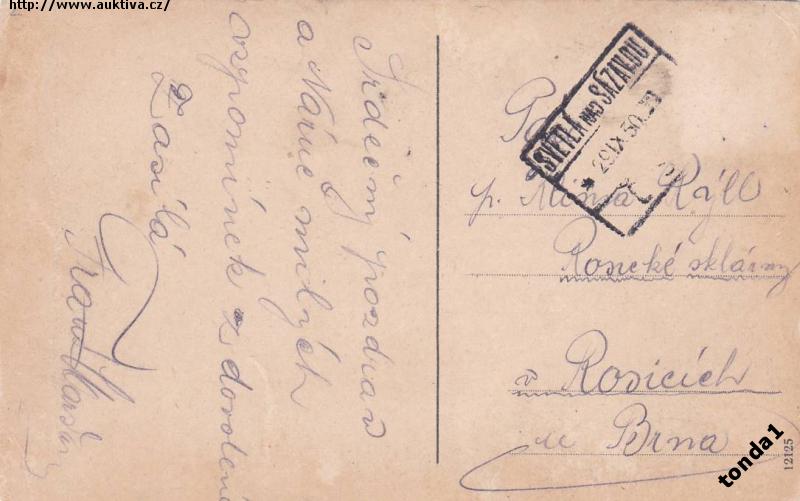 http://www.auktiva.cz/
Srdečný pozdrav
a Nárue milých
vzpomínek z dovolené
Zasílá
SVĚTLÁ NAD SÁZAVOU
29 IX 30
p. Rýll
Rosické sklárny
v Rosicích
u Brna
12125
tonda1